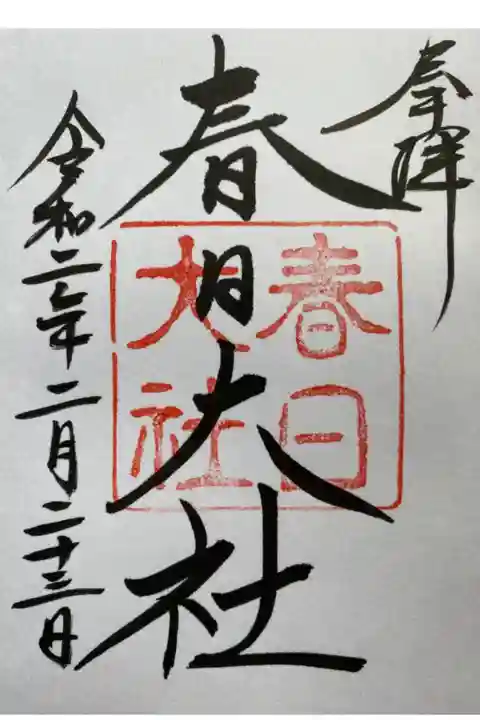 奉拝
春日大社
春日
大社
令和二年二月二十三日